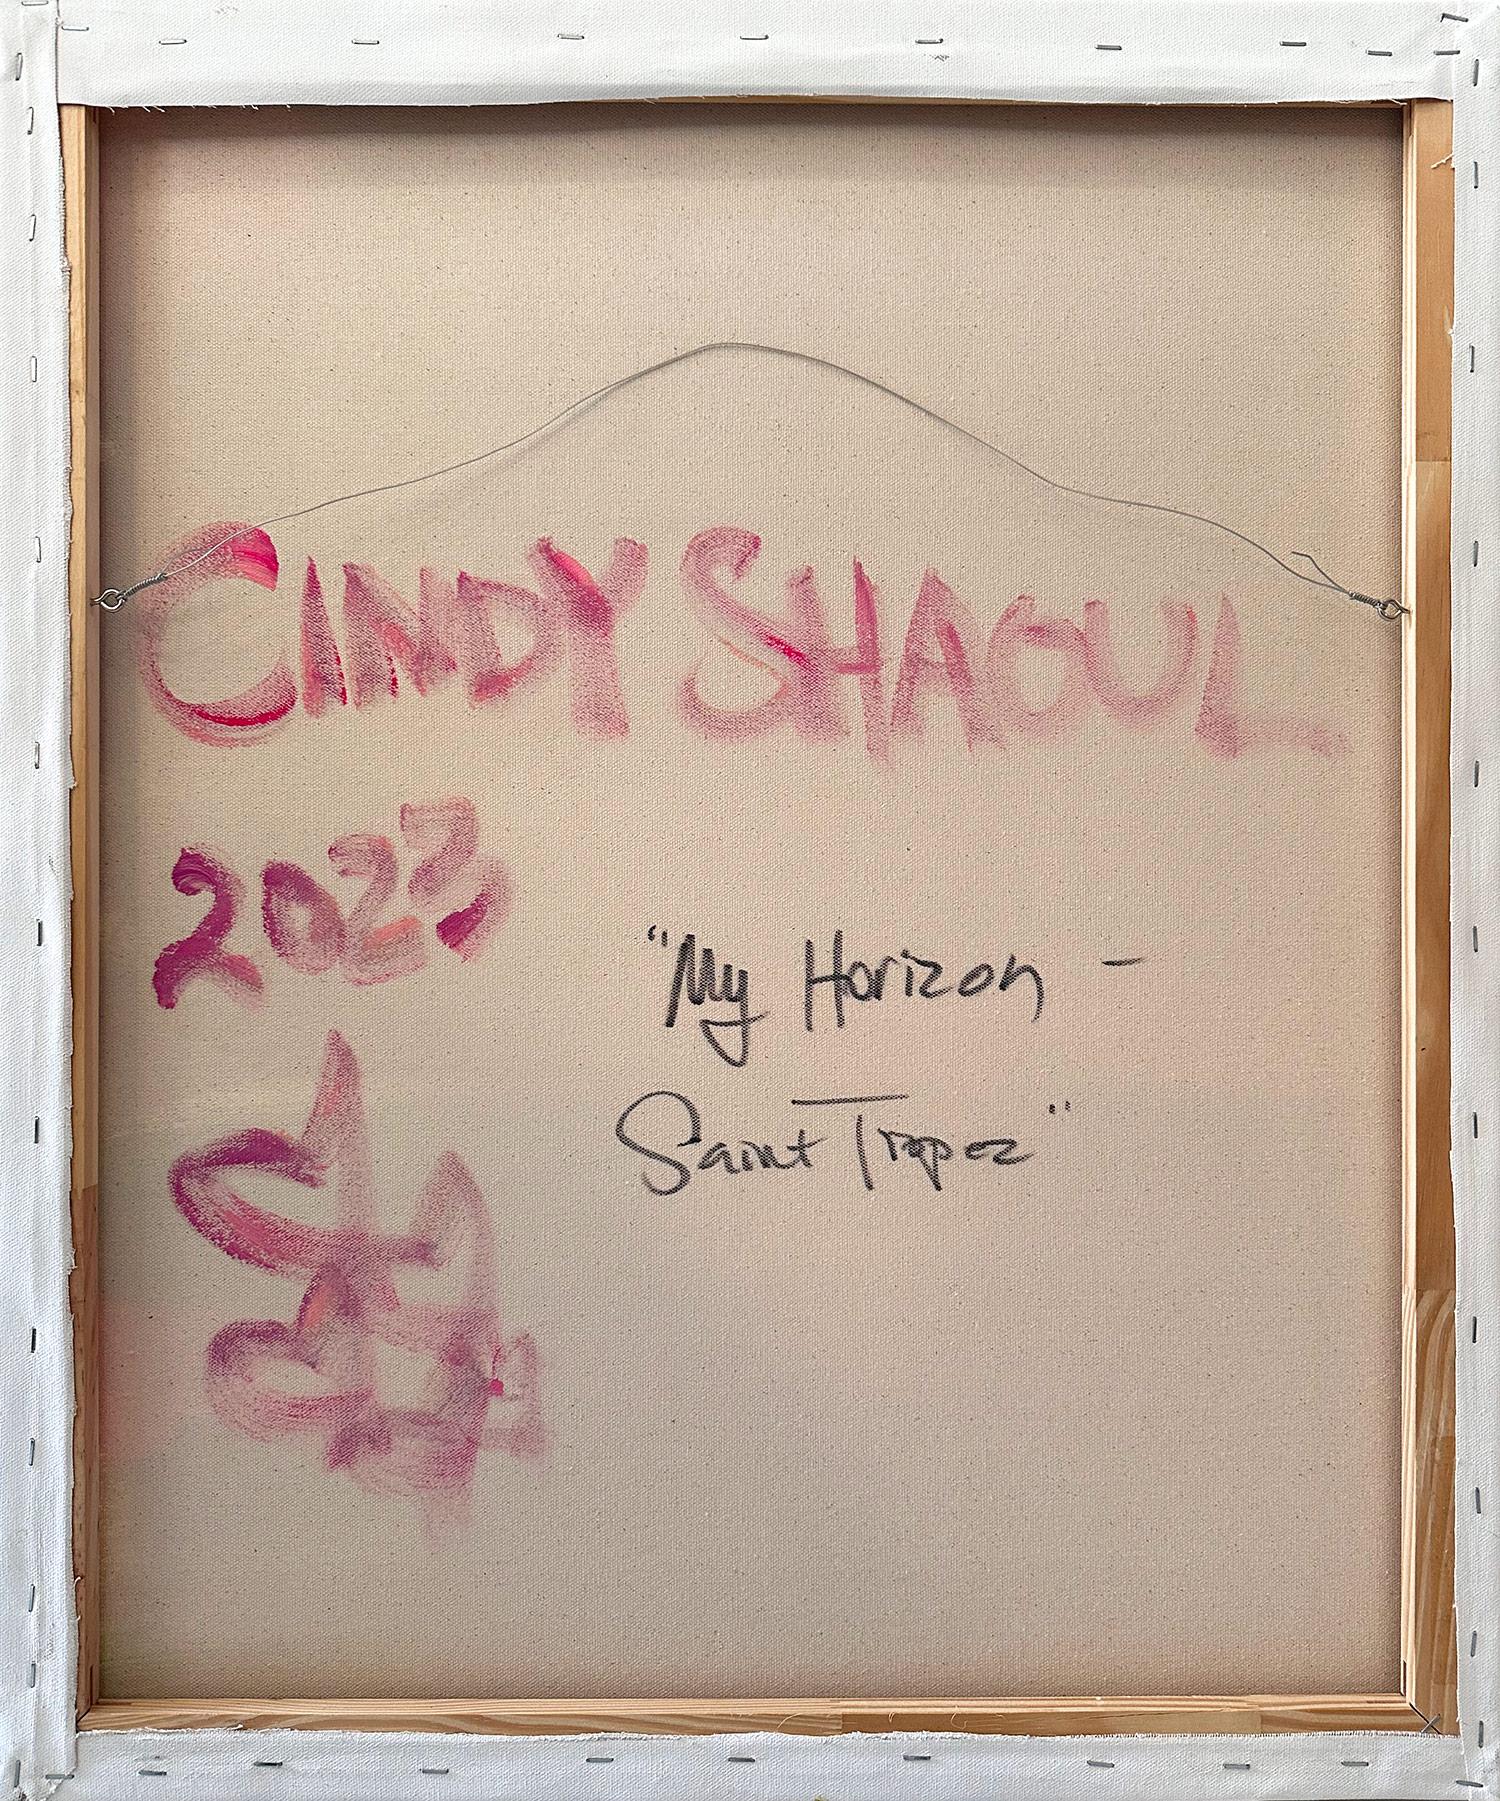 CINDY SHAOUL
2023
"My Horizon -
Saint Tropez"